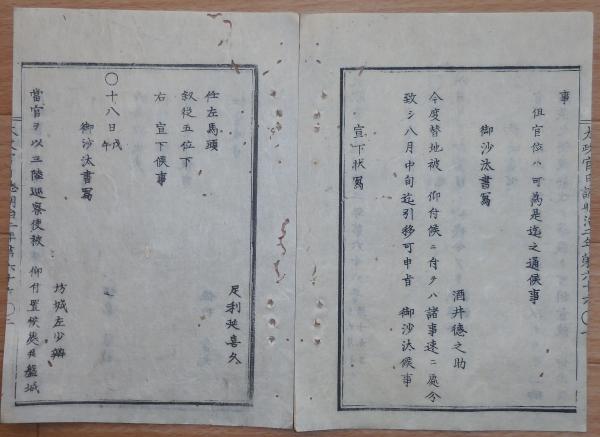 事
但官位ハ可為是迄之通候事
御沙汰書写
酒井徳之助
今度替地被 仰付候ニ付テハ諸事速ニ処令
致シ八月中旬迄引移可申旨 御沙汰候事
宣下状写
足利延喜久
任左馬頭
叙従五位下
右 宣下候事
〇十八日戊午
御沙汰書写
坊城左少辨
当官ヲ以三陸巡察使被 仰付置候処磐城
太政官日誌明治二年第六十六〇一